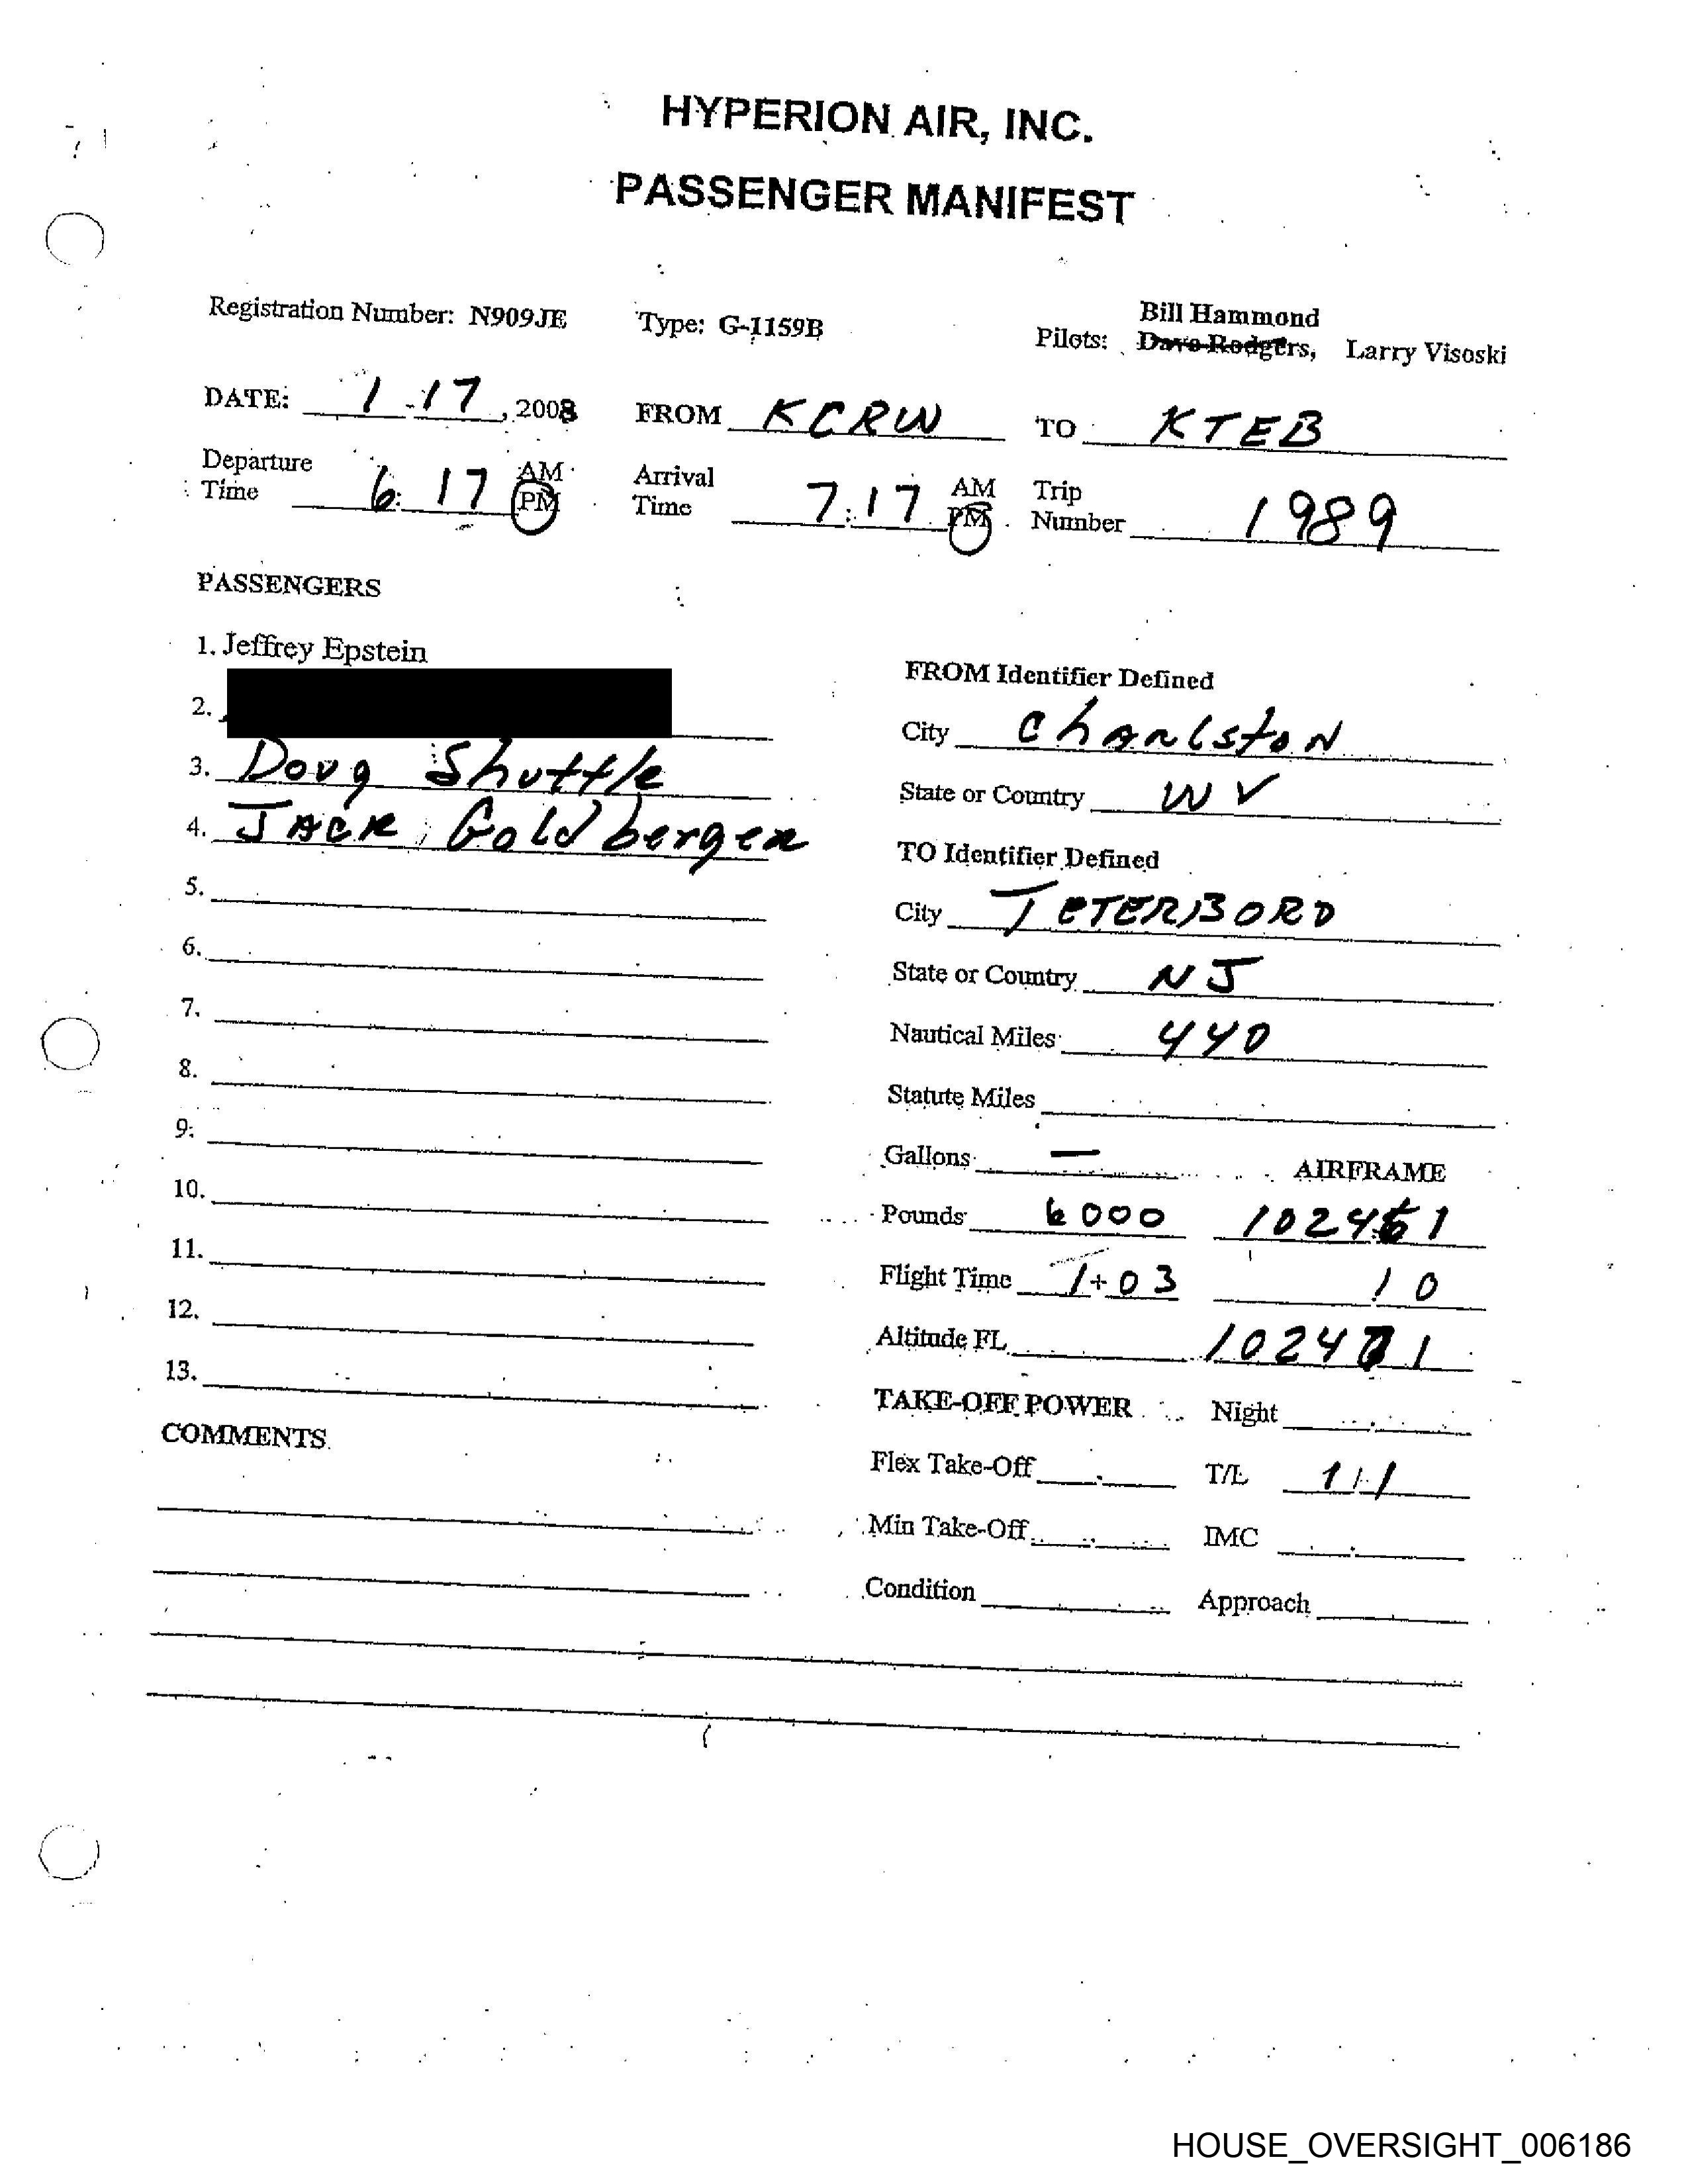 HYPERION AIR, INC.
PASSENGER MANIFEST
Registration Number: N909JE Type: G-1159B Pilots: Bill Hammond Dave Rodgers, Larry Visoski
DATE: 1-17, 2008 FROM KCRW TO KTEB
Departure Time 6:17 AM PM Arrival Time 7:17 AM PM Trip Number 1989
PASSENGERS
1. Jeffrey Epstein
2.
3. Doug Shuttle
4. JACK Goldberger
5.
6.
7.
8.
9.
10.
11.
12.
13.
COMMENTS
FROM Identifier Defined
City CharlstoN
State or Country WV
TO Identifier Defined
City TETERBORO
State or Country NJ
Nautical Miles 440
Statute Miles
Gallons — AIRFRAME
Pounds 6000 102461
Flight Time 1+03 10
Altitude FL 102471
TAKE-OFF POWER Night
Flex Take-Off T/L 1/1
Min Take-Off IMC
Condition Approach
HOUSE_OVERSIGHT_006186